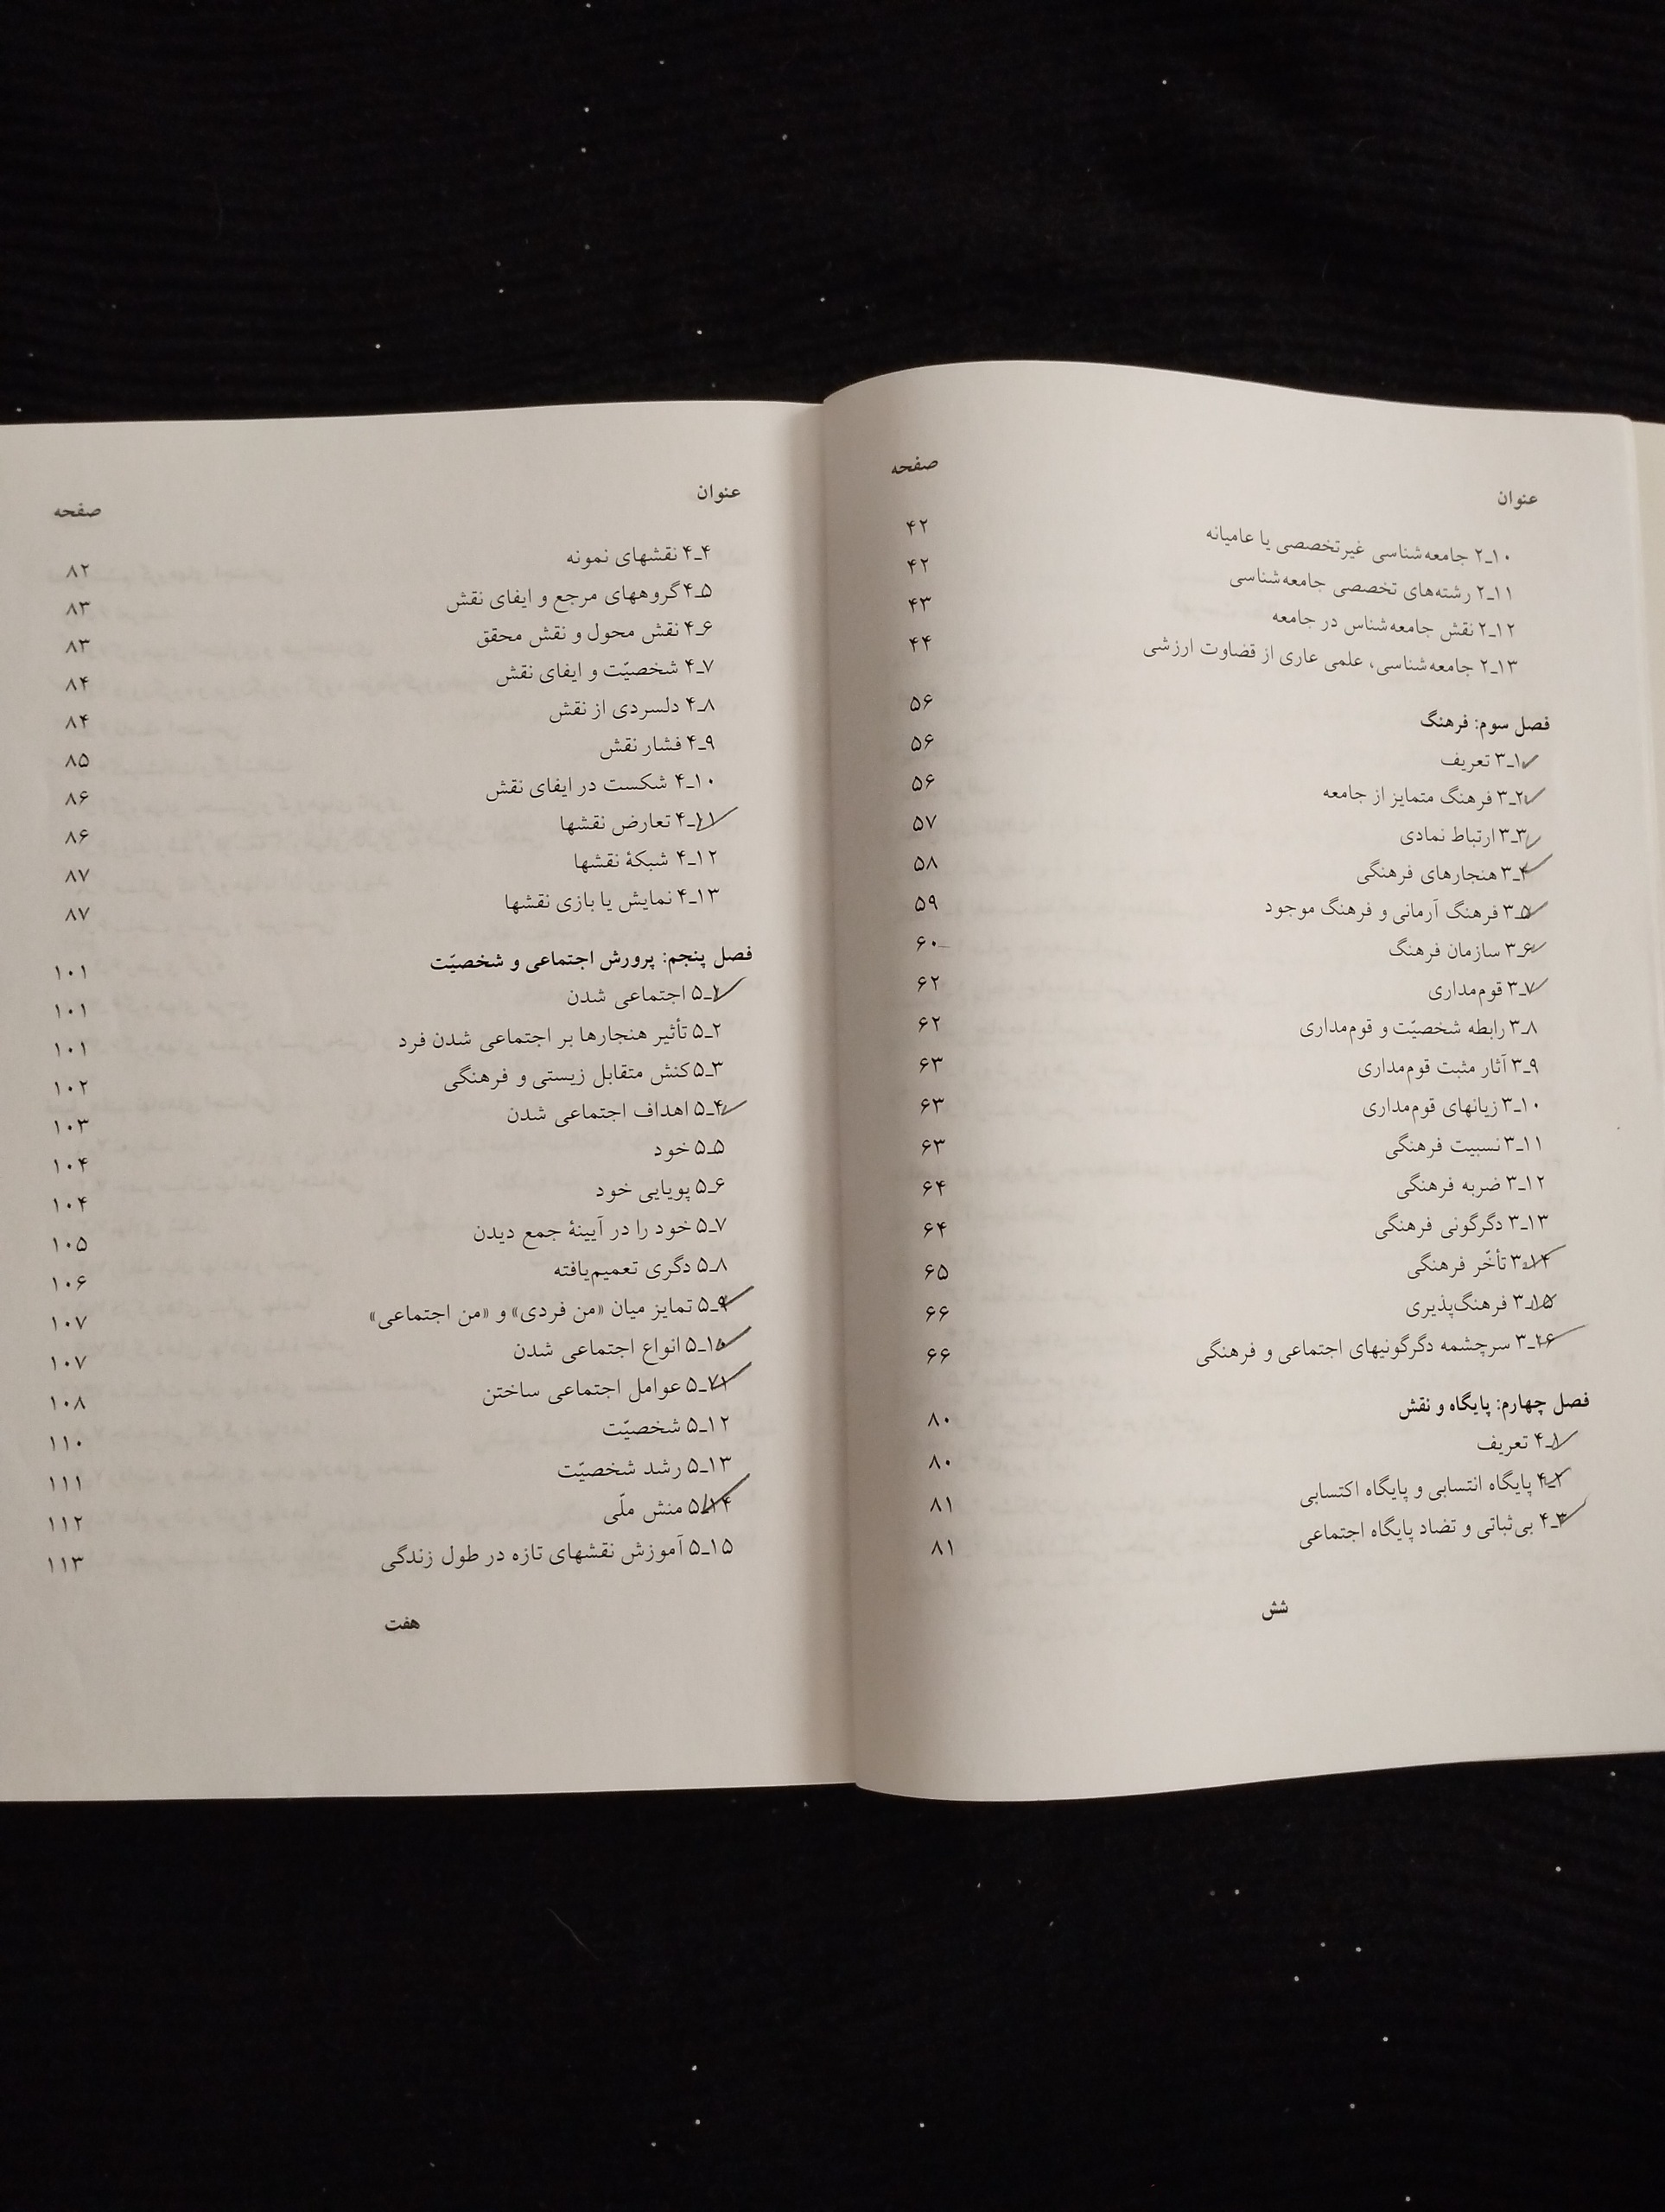 عنوان صفحه
۲ـ۱۰ جامعه‌شناسی غیرتخصصی یا عامیانه ۴۲
۲ـ۱۱ رشته‌های تخصصی جامعه‌شناسی ۴۲
۲ـ۱۲ نقش جامعه‌شناس در جامعه ۴۳
۲ـ۱۳ جامعه‌شناسی، علمی عاری از قضاوت ارزشی ۴۴
فصل سوم: فرهنگ ۵۶
۳ـ۱ تعریف ۵۶
۳ـ۲ فرهنگ متمایز از جامعه ۵۶
۳ـ۳ ارتباط نمادی ۵۷
۳ـ۴ هنجارهای فرهنگی ۵۸
۳ـ۵ فرهنگ آرمانی و فرهنگ موجود ۵۹
۳ـ۶ سازمان فرهنگ ۶۰
۳ـ۷ قوم‌مداری ۶۲
۳ـ۸ رابطه شخصیّت و قوم‌مداری ۶۲
۳ـ۹ آثار مثبت قوم‌مداری ۶۳
۳ـ۱۰ زیانهای قوم‌مداری ۶۳
۳ـ۱۱ نسبیت فرهنگی ۶۳
۳ـ۱۲ ضربه فرهنگی ۶۴
۳ـ۱۳ دگرگونی فرهنگی ۶۴
۳ـ۱۴ تأخّر فرهنگی ۶۵
۳ـ۱۵ فرهنگ‌پذیری ۶۶
۳ـ۱۶ سرچشمه دگرگونیهای اجتماعی و فرهنگی ۶۶
فصل چهارم: پایگاه و نقش ۸۰
۴ـ۱ تعریف ۸۰
۴ـ۲ پایگاه انتسابی و پایگاه اکتسابی ۸۱
۴ـ۳ بی‌ثباتی و تضاد پایگاه اجتماعی ۸۱
شش
عنوان صفحه
۴ـ۴ نقشهای نمونه ۸۲
۴ـ۵ گروههای مرجع و ایفای نقش ۸۳
۴ـ۶ نقش محول و نقش محقق ۸۳
۴ـ۷ شخصیّت و ایفای نقش ۸۴
۴ـ۸ دلسردی از نقش ۸۴
۴ـ۹ فشار نقش ۸۵
۴ـ۱۰ شکست در ایفای نقش ۸۶
۴ـ۱۱ تعارض نقشها ۸۶
۴ـ۱۲ شبکهٔ نقشها ۸۷
۴ـ۱۳ نمایش یا بازی نقشها ۸۷
فصل پنجم: پرورش اجتماعی و شخصیّت ۱۰۱
۵ـ۱ اجتماعی شدن ۱۰۱
۵ـ۲ تأثیر هنجارها بر اجتماعی شدن فرد ۱۰۱
۵ـ۳ کنش متقابل زیستی و فرهنگی ۱۰۲
۵ـ۴ اهداف اجتماعی شدن ۱۰۳
۵ـ۵ خود ۱۰۴
۵ـ۶ پویایی خود ۱۰۴
۵ـ۷ خود را در آیینهٔ جمع دیدن ۱۰۵
۵ـ۸ دگری تعمیم‌یافته ۱۰۶
۵ـ۹ تمایز میان «من فردی» و «من اجتماعی» ۱۰۷
۵ـ۱۰ انواع اجتماعی شدن ۱۰۷
۵ـ۱۱ عوامل اجتماعی ساختن ۱۰۸
۵ـ۱۲ شخصیّت ۱۱۰
۵ـ۱۳ رشد شخصیّت ۱۱۱
۵ـ۱۴ منش ملّی ۱۱۲
۵ـ۱۵ آموزش نقشهای تازه در طول زندگی ۱۱۳
هفت